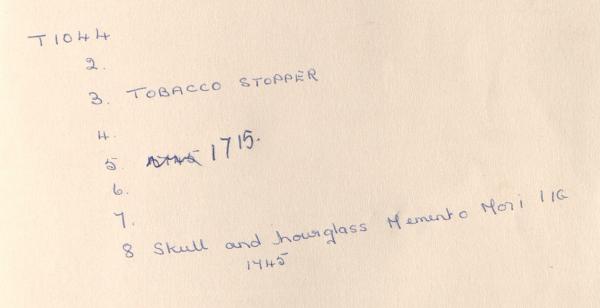 T1044
2.
3. TOBACCO STOPPER
4.
5. 1715.
6.
7.
8 Skull and hourglass Memento Mori IIG
1745